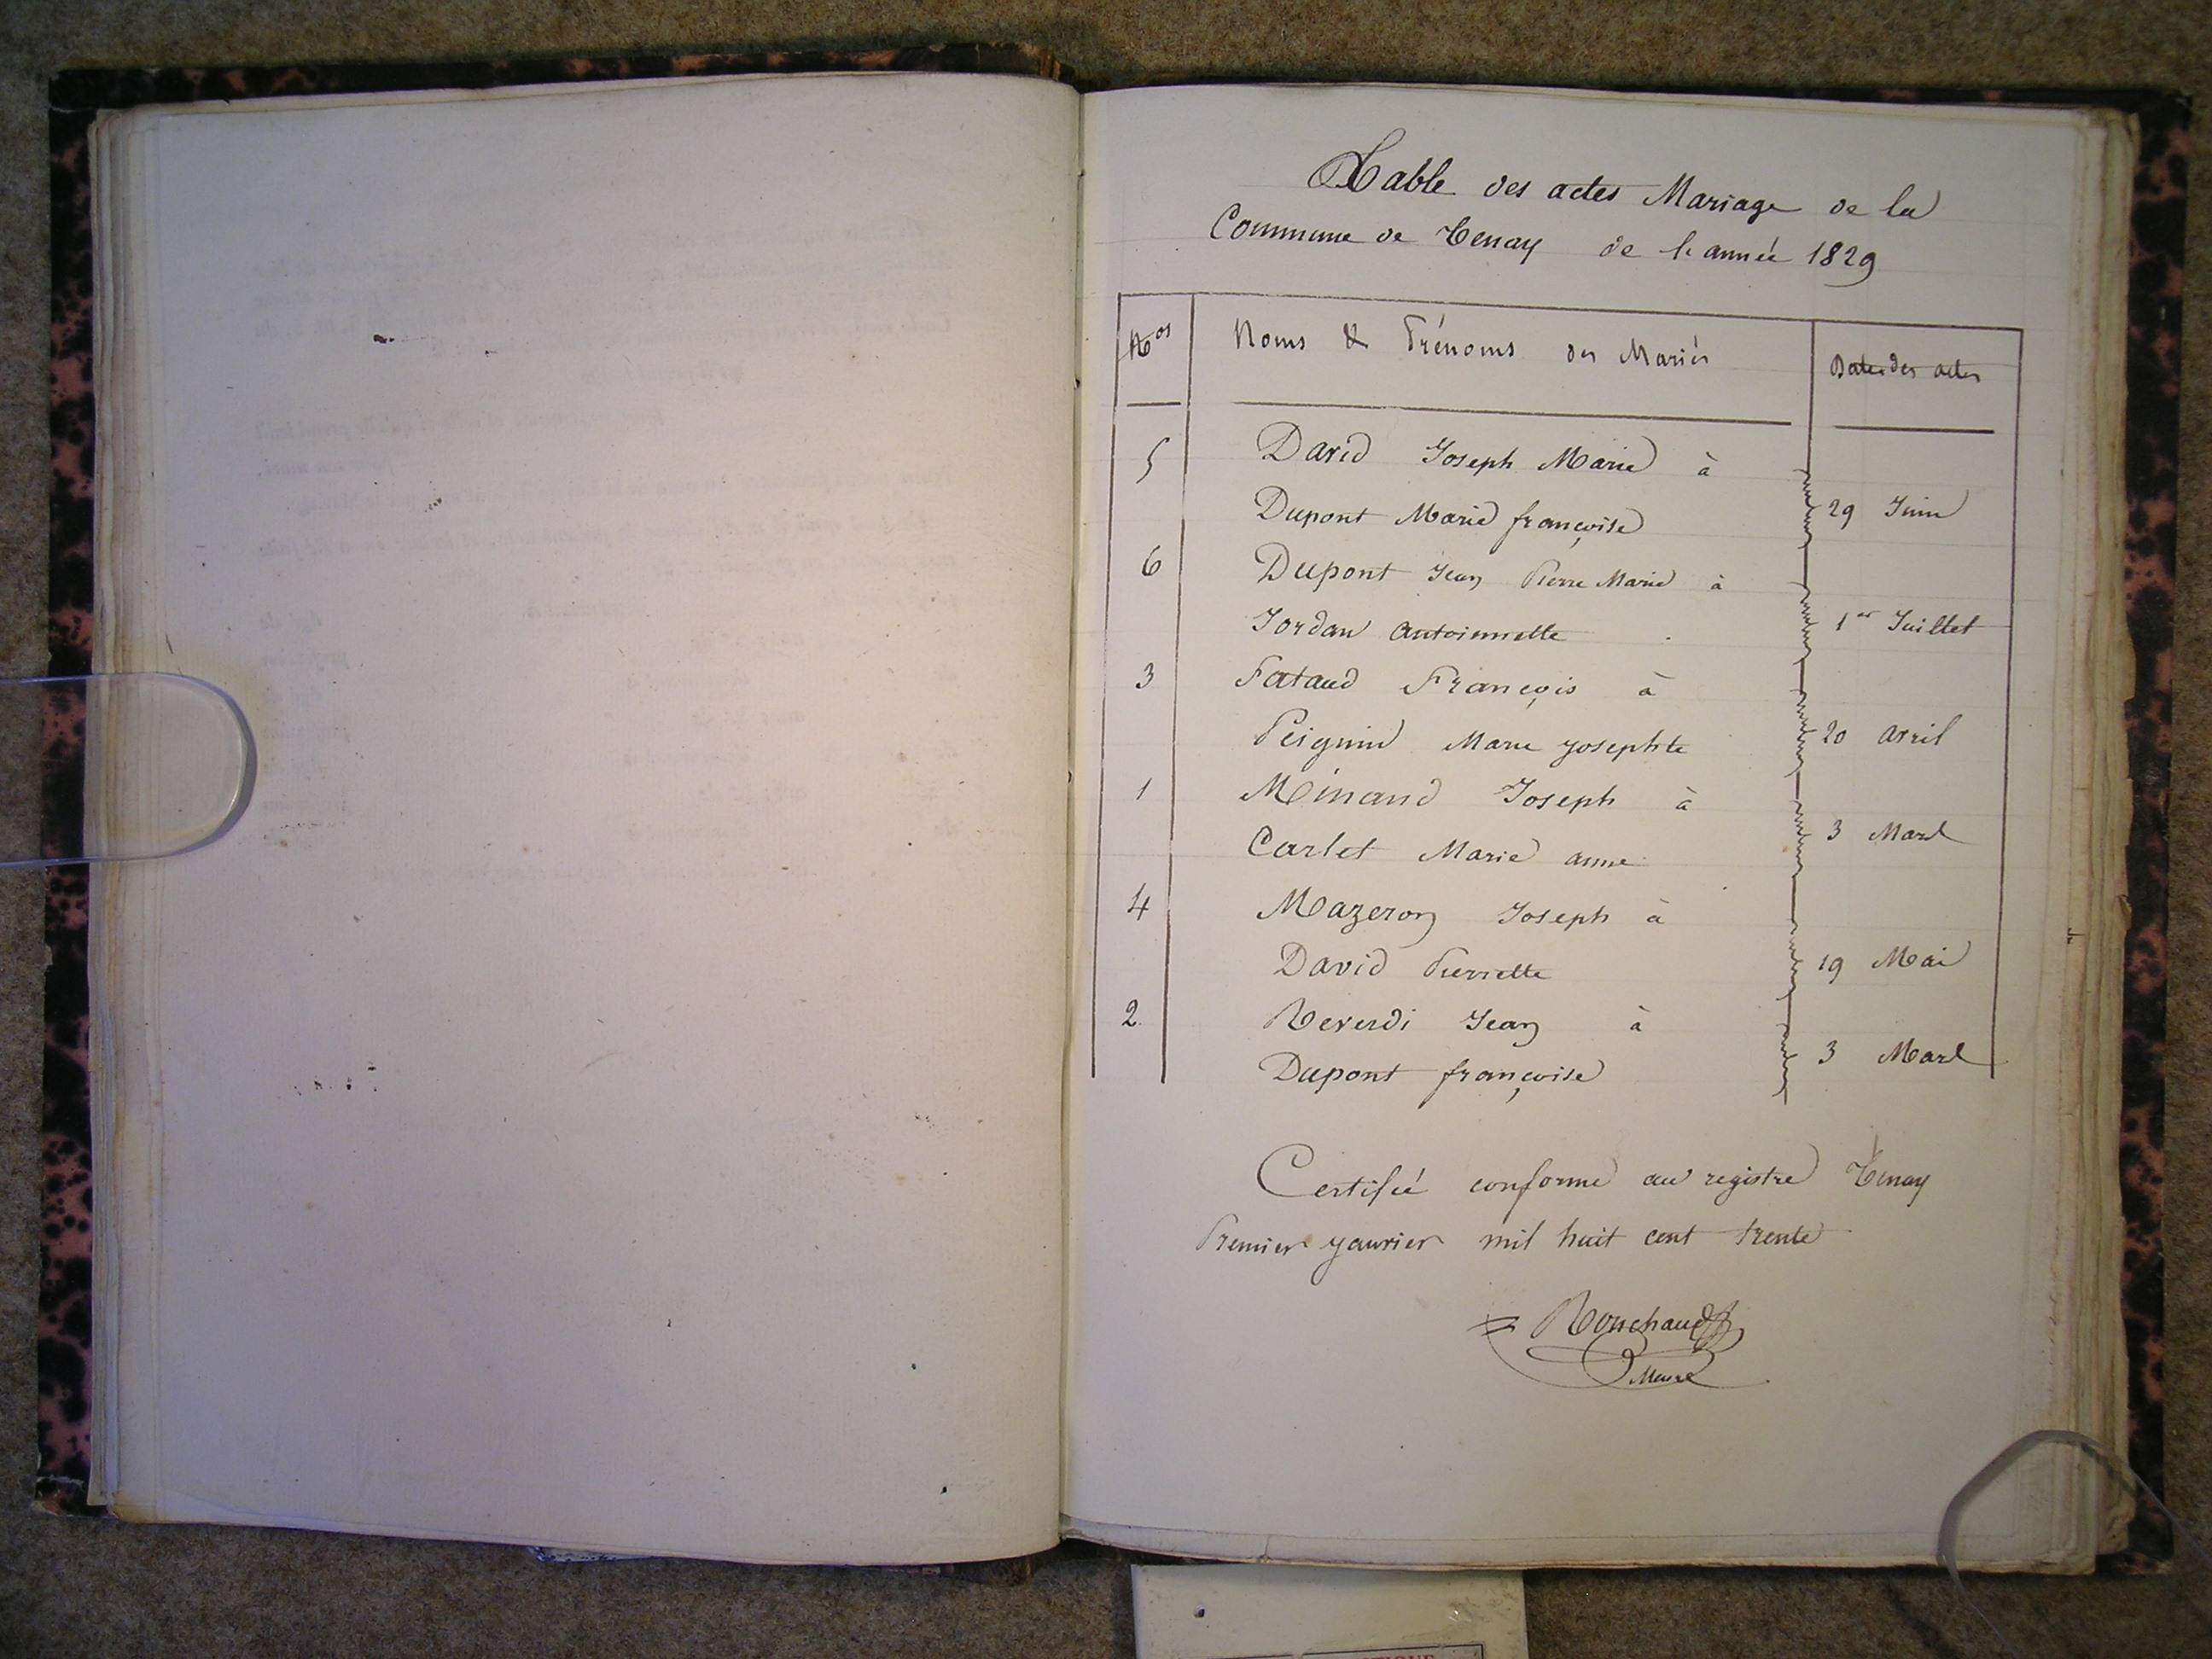 Table des actes Mariage de la
Commune de Tenay de l'année 1829
Nos Noms & Prénoms des Mariés Dates des actes
5 David Joseph Marie à
Dupont Marie françoise 29 Juin
6 Dupont Jean Pierre Marie à
Jordan antoinnette 1er Juillet
3 Fataud François à
Peignin Marie josephte 20 avril
1 Minand Joseph à
Carlet Marie anne 3 Mars
4 Mazeron Joseph à
David Pierrette 19 Mai
2 Reverdi Jean à
Dupont françoise 3 Mars
Certifié conforme au registre Tenay
Premier janvier mil huit cent trente